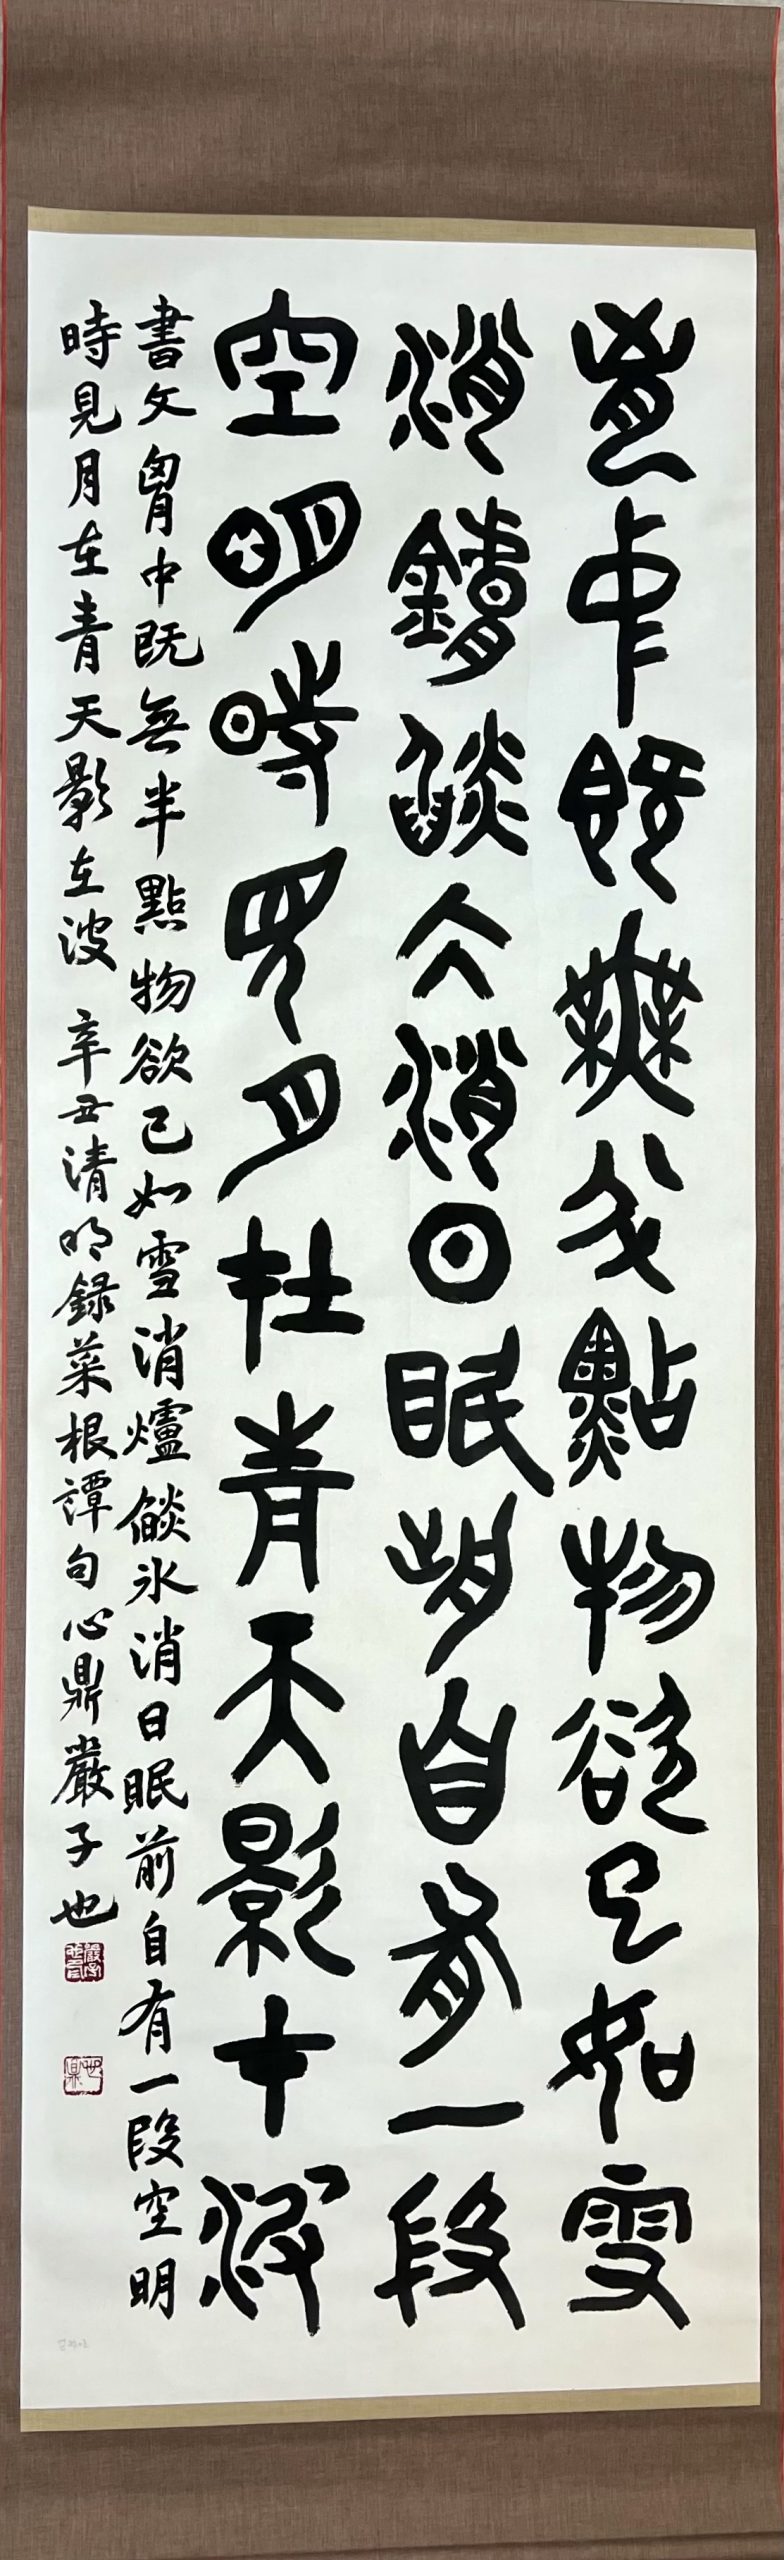 胷中既無半點物欲已如雪
消鑪燄仌消日眠前自有一段
空明時見月在青天影在波
書文胷中既無半點物欲已如雪消爐燄冰消日眠前自有一段空明
時見月在青天影在波 辛丑清明録菜根譚句心鼎嚴子也